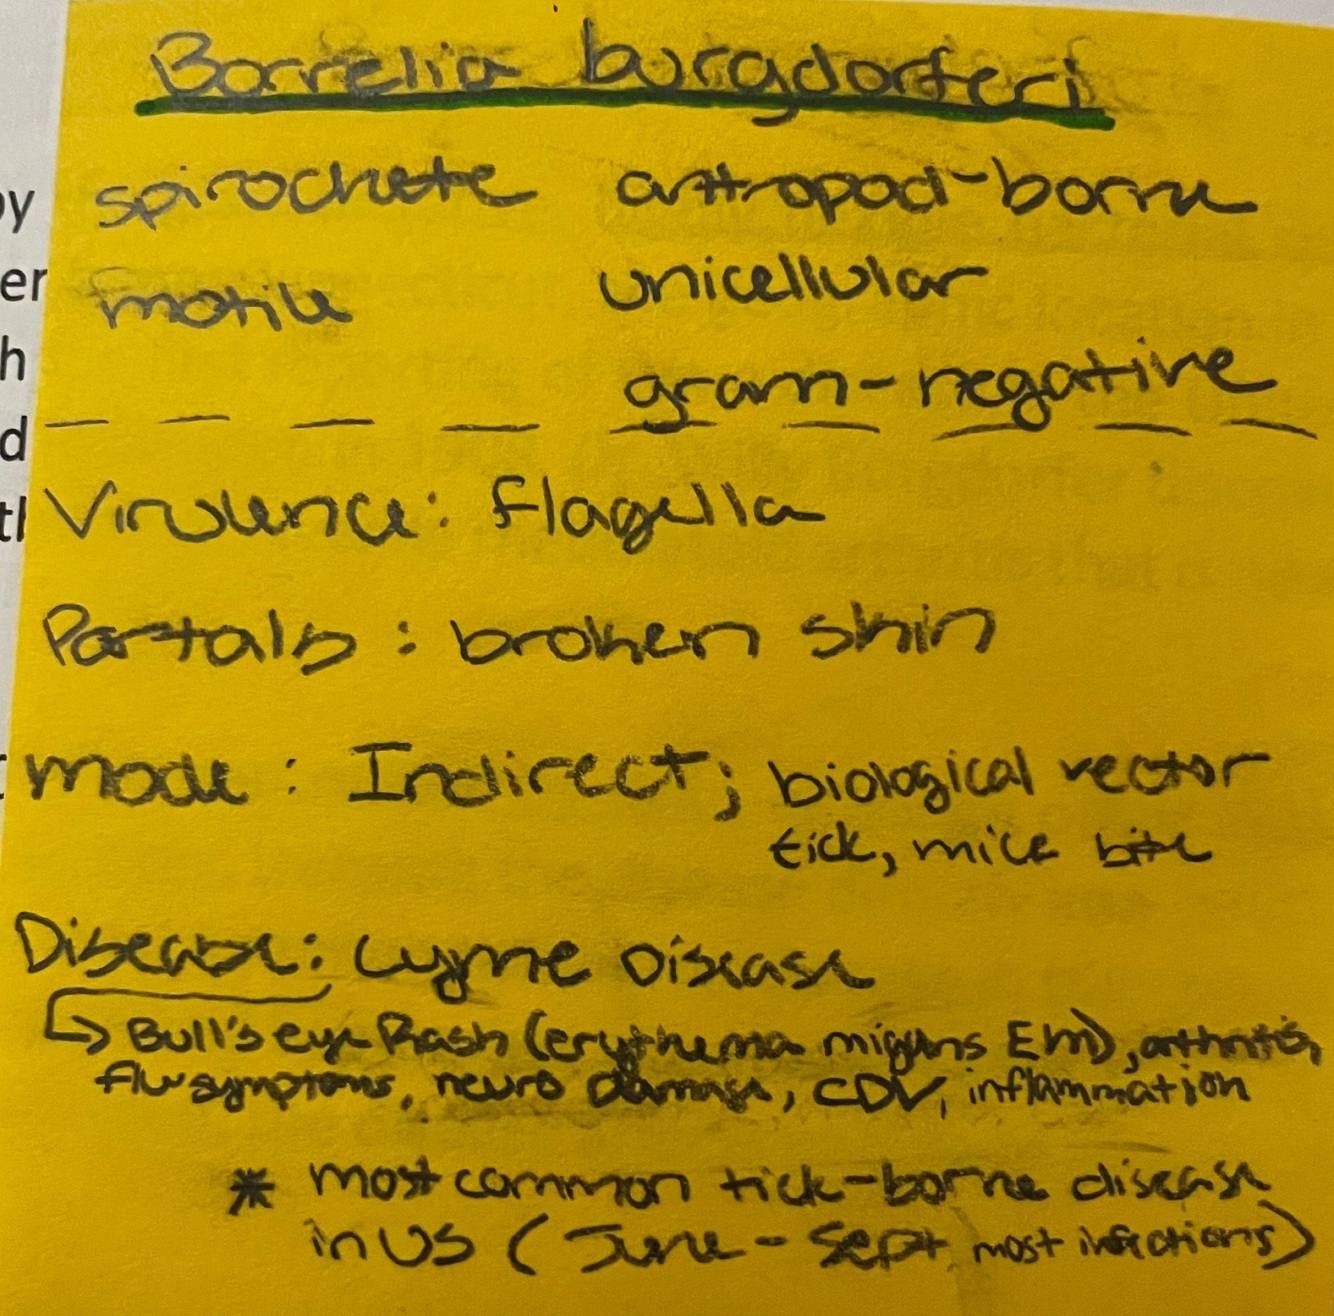 Borrelia burgdorferi
spirochete arthropod-borne
by
motile unicellular
er
h
gram-negative
d
Virulence: flagella
tl
Portals: broken skin
mode: Indirect; biological vector
tick, mice bite
Disease: Lyme Disease
↳ Bull's eye Rash (erythema migrans EM), arthritis,
flu symptoms, neuro damage, CDV, inflammation
* most common tick-borne disease
in US (June - Sept most infections)